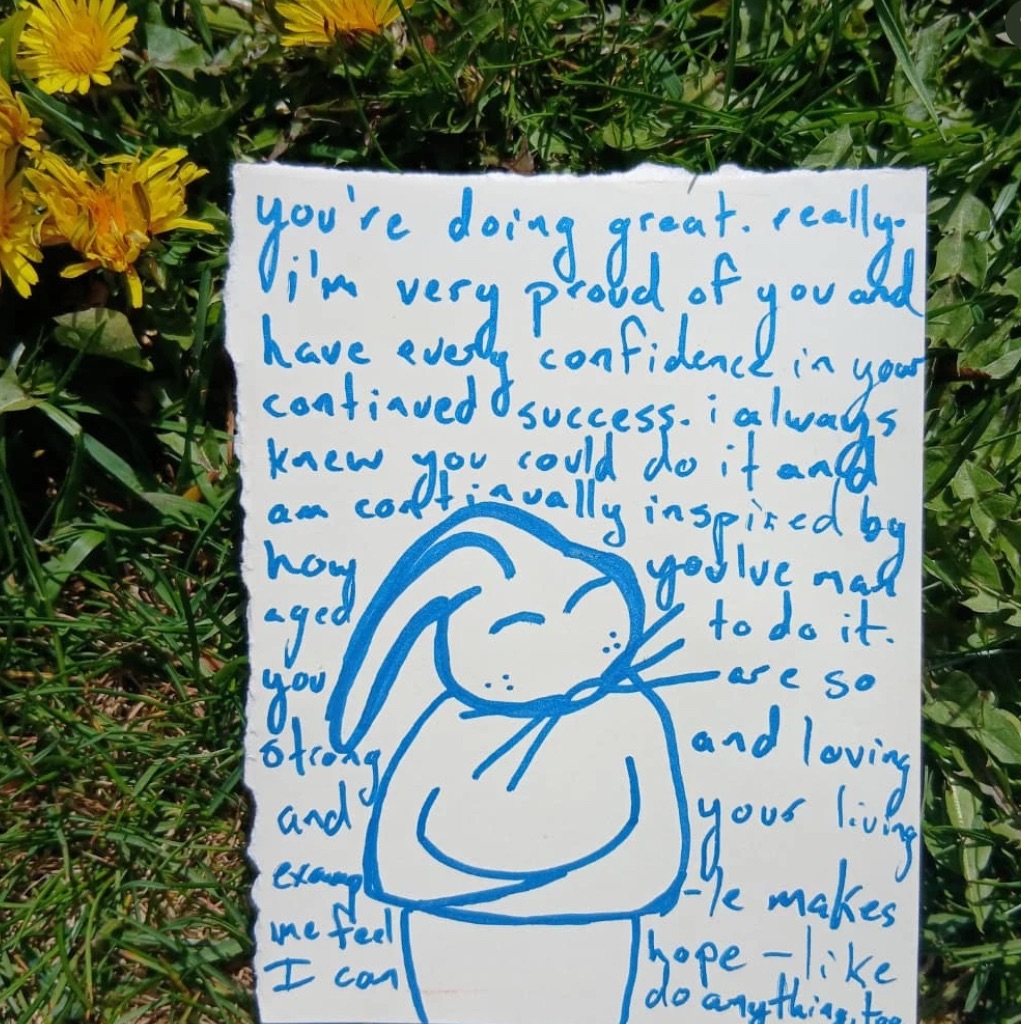 you're doing great. really.
i'm very proud of you and
have every confidence in your
continued success. i always
knew you could do it and
am continually inspired by
how you've man
aged to do it.
you are so
strong and loving
and your living
examp -le makes
me feel hope - like
I can do anything, too